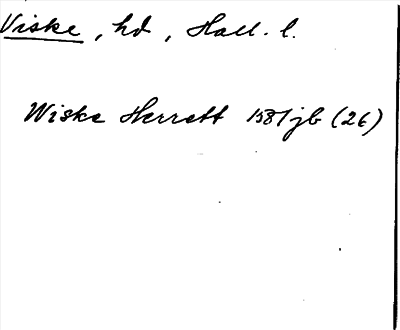 Viske, hd, Hall. l.
Wiske Herrett 1581 jb (26)